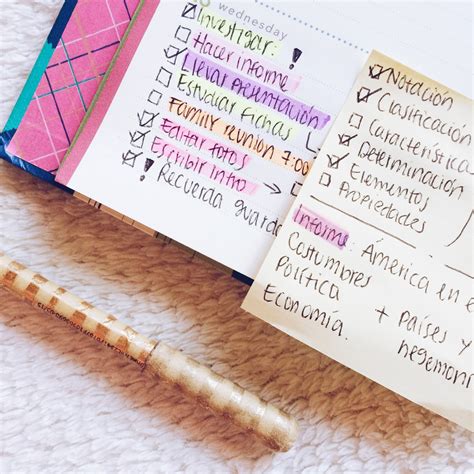 wednesday
Investigar:
Hacer informe !
Llevar presentación
Estudiar fichas
Family reunion 7:00
Editar fotos
Escribir intro →
! Recuerda guarda
Notación
Clasificación
Característica
Determinación
Elementos
Propiedades
Informe: América en e
Costumbres
Política + países y
Economía. hegemoní